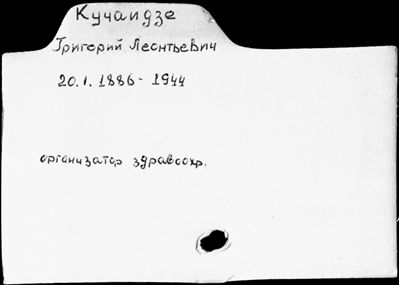 Кучаидзе
Григорий Леонтьевич
20.1.1886-1944
организатор здравоохр.